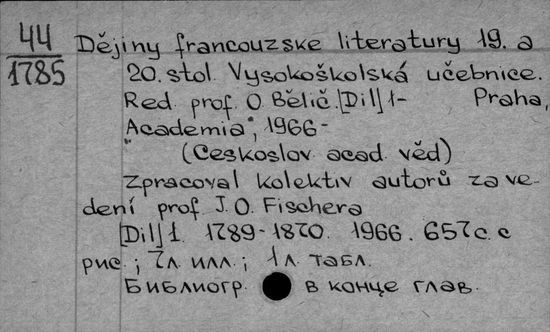 44
1785
Dějiny francouzske literatury 19. a
20. stol. Vysokoškolská učebnice.
Red. prof. O. Bělič. [Dil] 1- Praha,
"Academia", 1966-
(Ceskoslov. acad. věd)
Zpracoval kolektiv autorů za ve-
dení prof J. O. Fischera
[Dil] 1. 1789-1870. 1966. 657с. с
рис.; 7л. илл.; 1л. табл.
Библиогр. в конце глав.